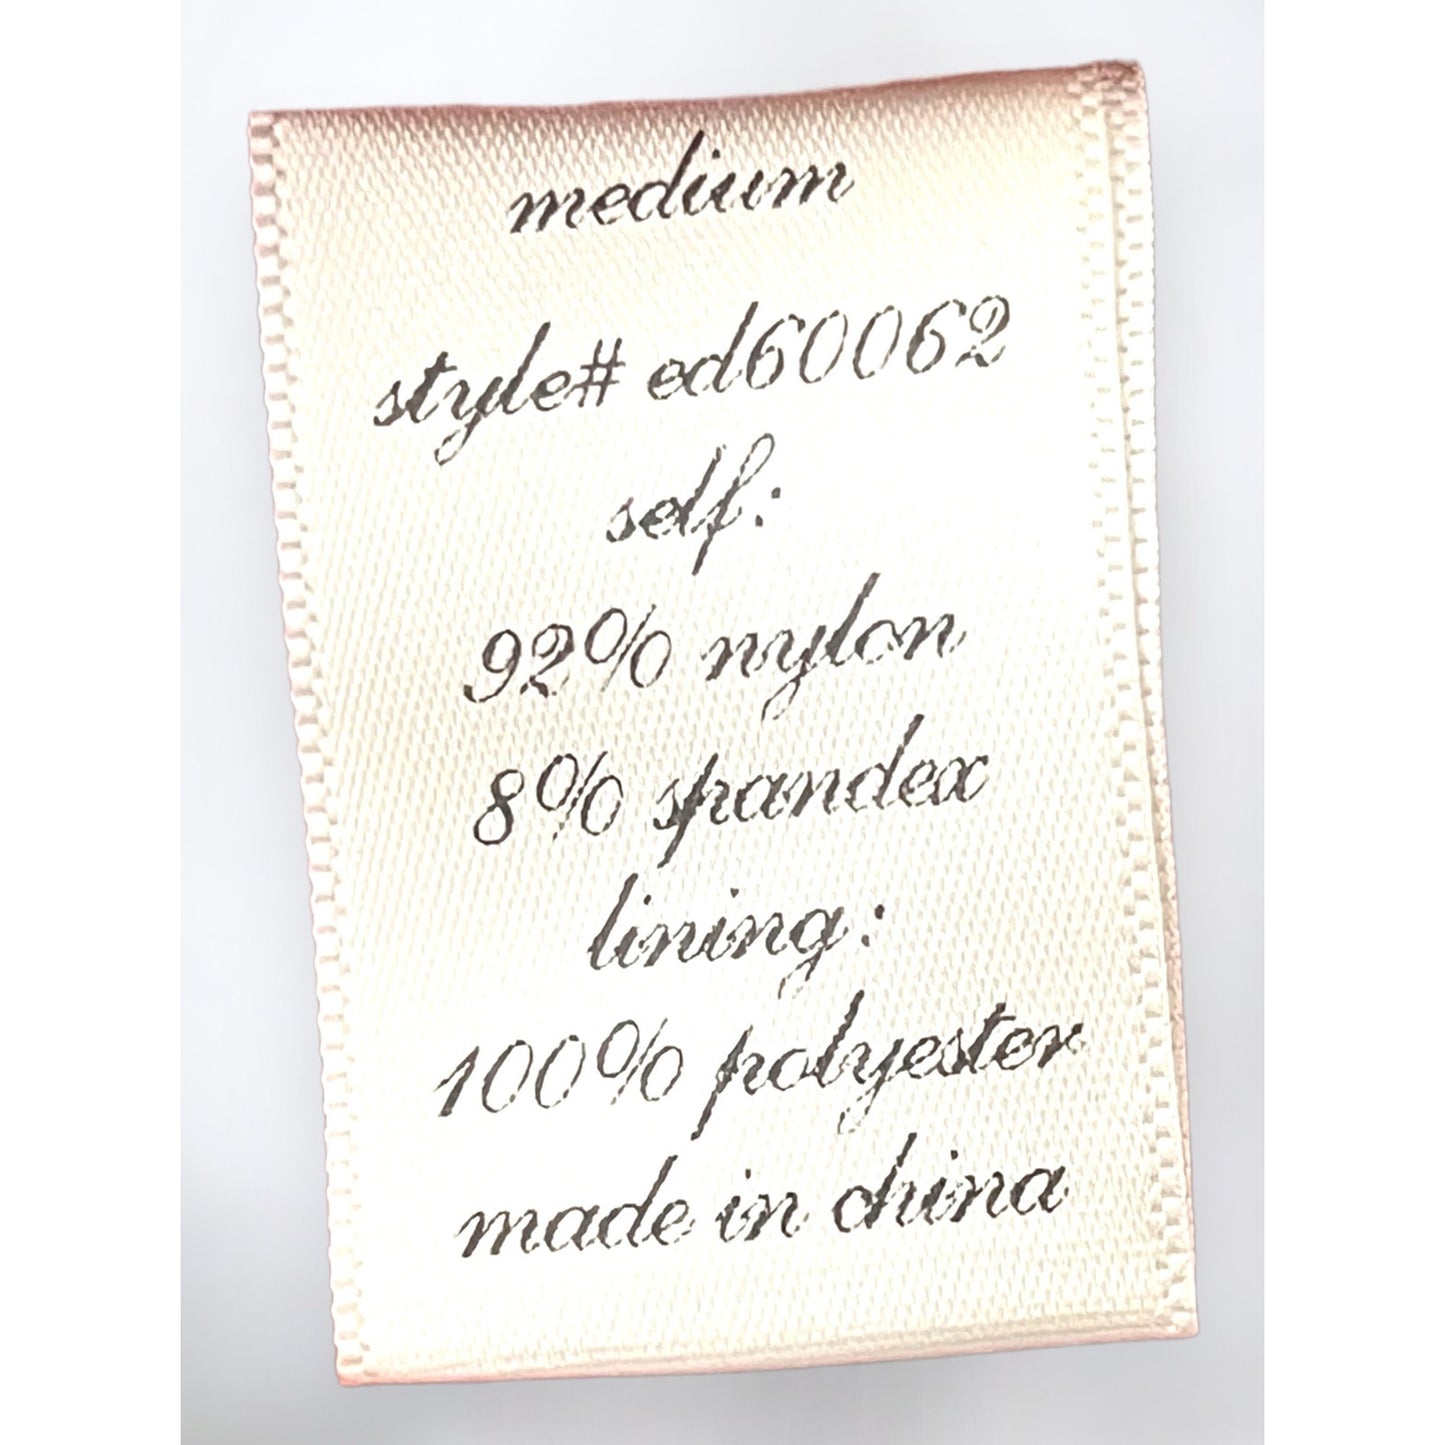 medium
style# ed60062
self:
92% nylon
8% spandex
lining:
100% polyester
made in china